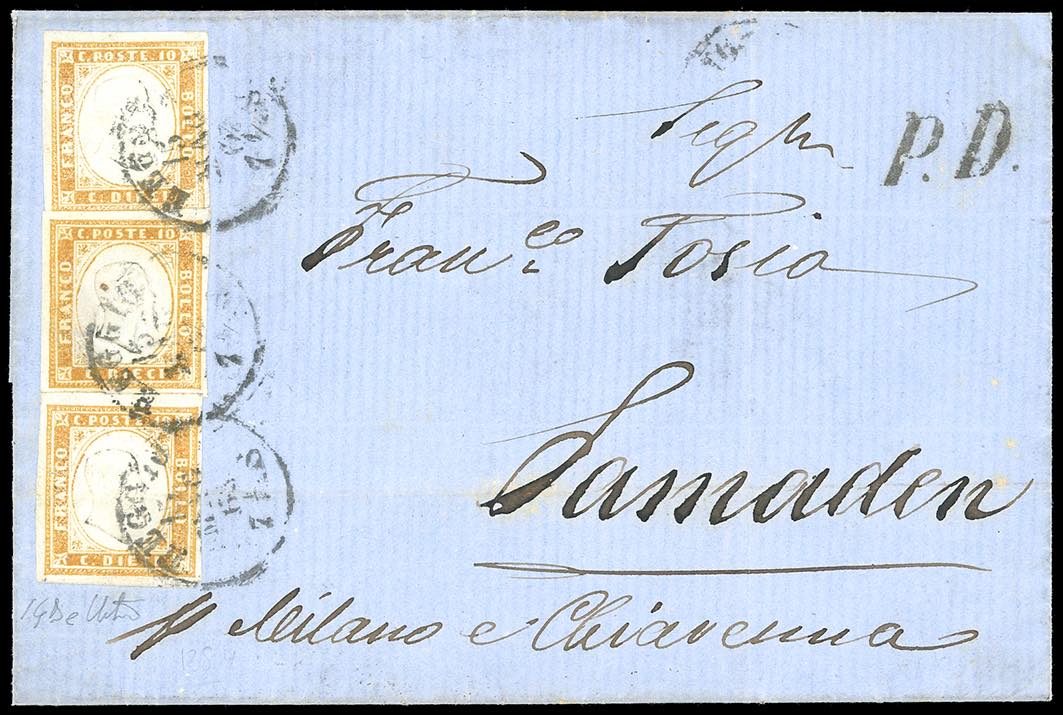 C. POSTE. 10
FRANCO
BOLLO
C. DIECI
C. POSTE. 10
FRANCO
BOLLO
C. DIECI
C. POSTE. 10
FRANCO
BOLLO
C. DIECI
P.D.
Franco. Tosio
Samaden
p Milano e Chiavenna